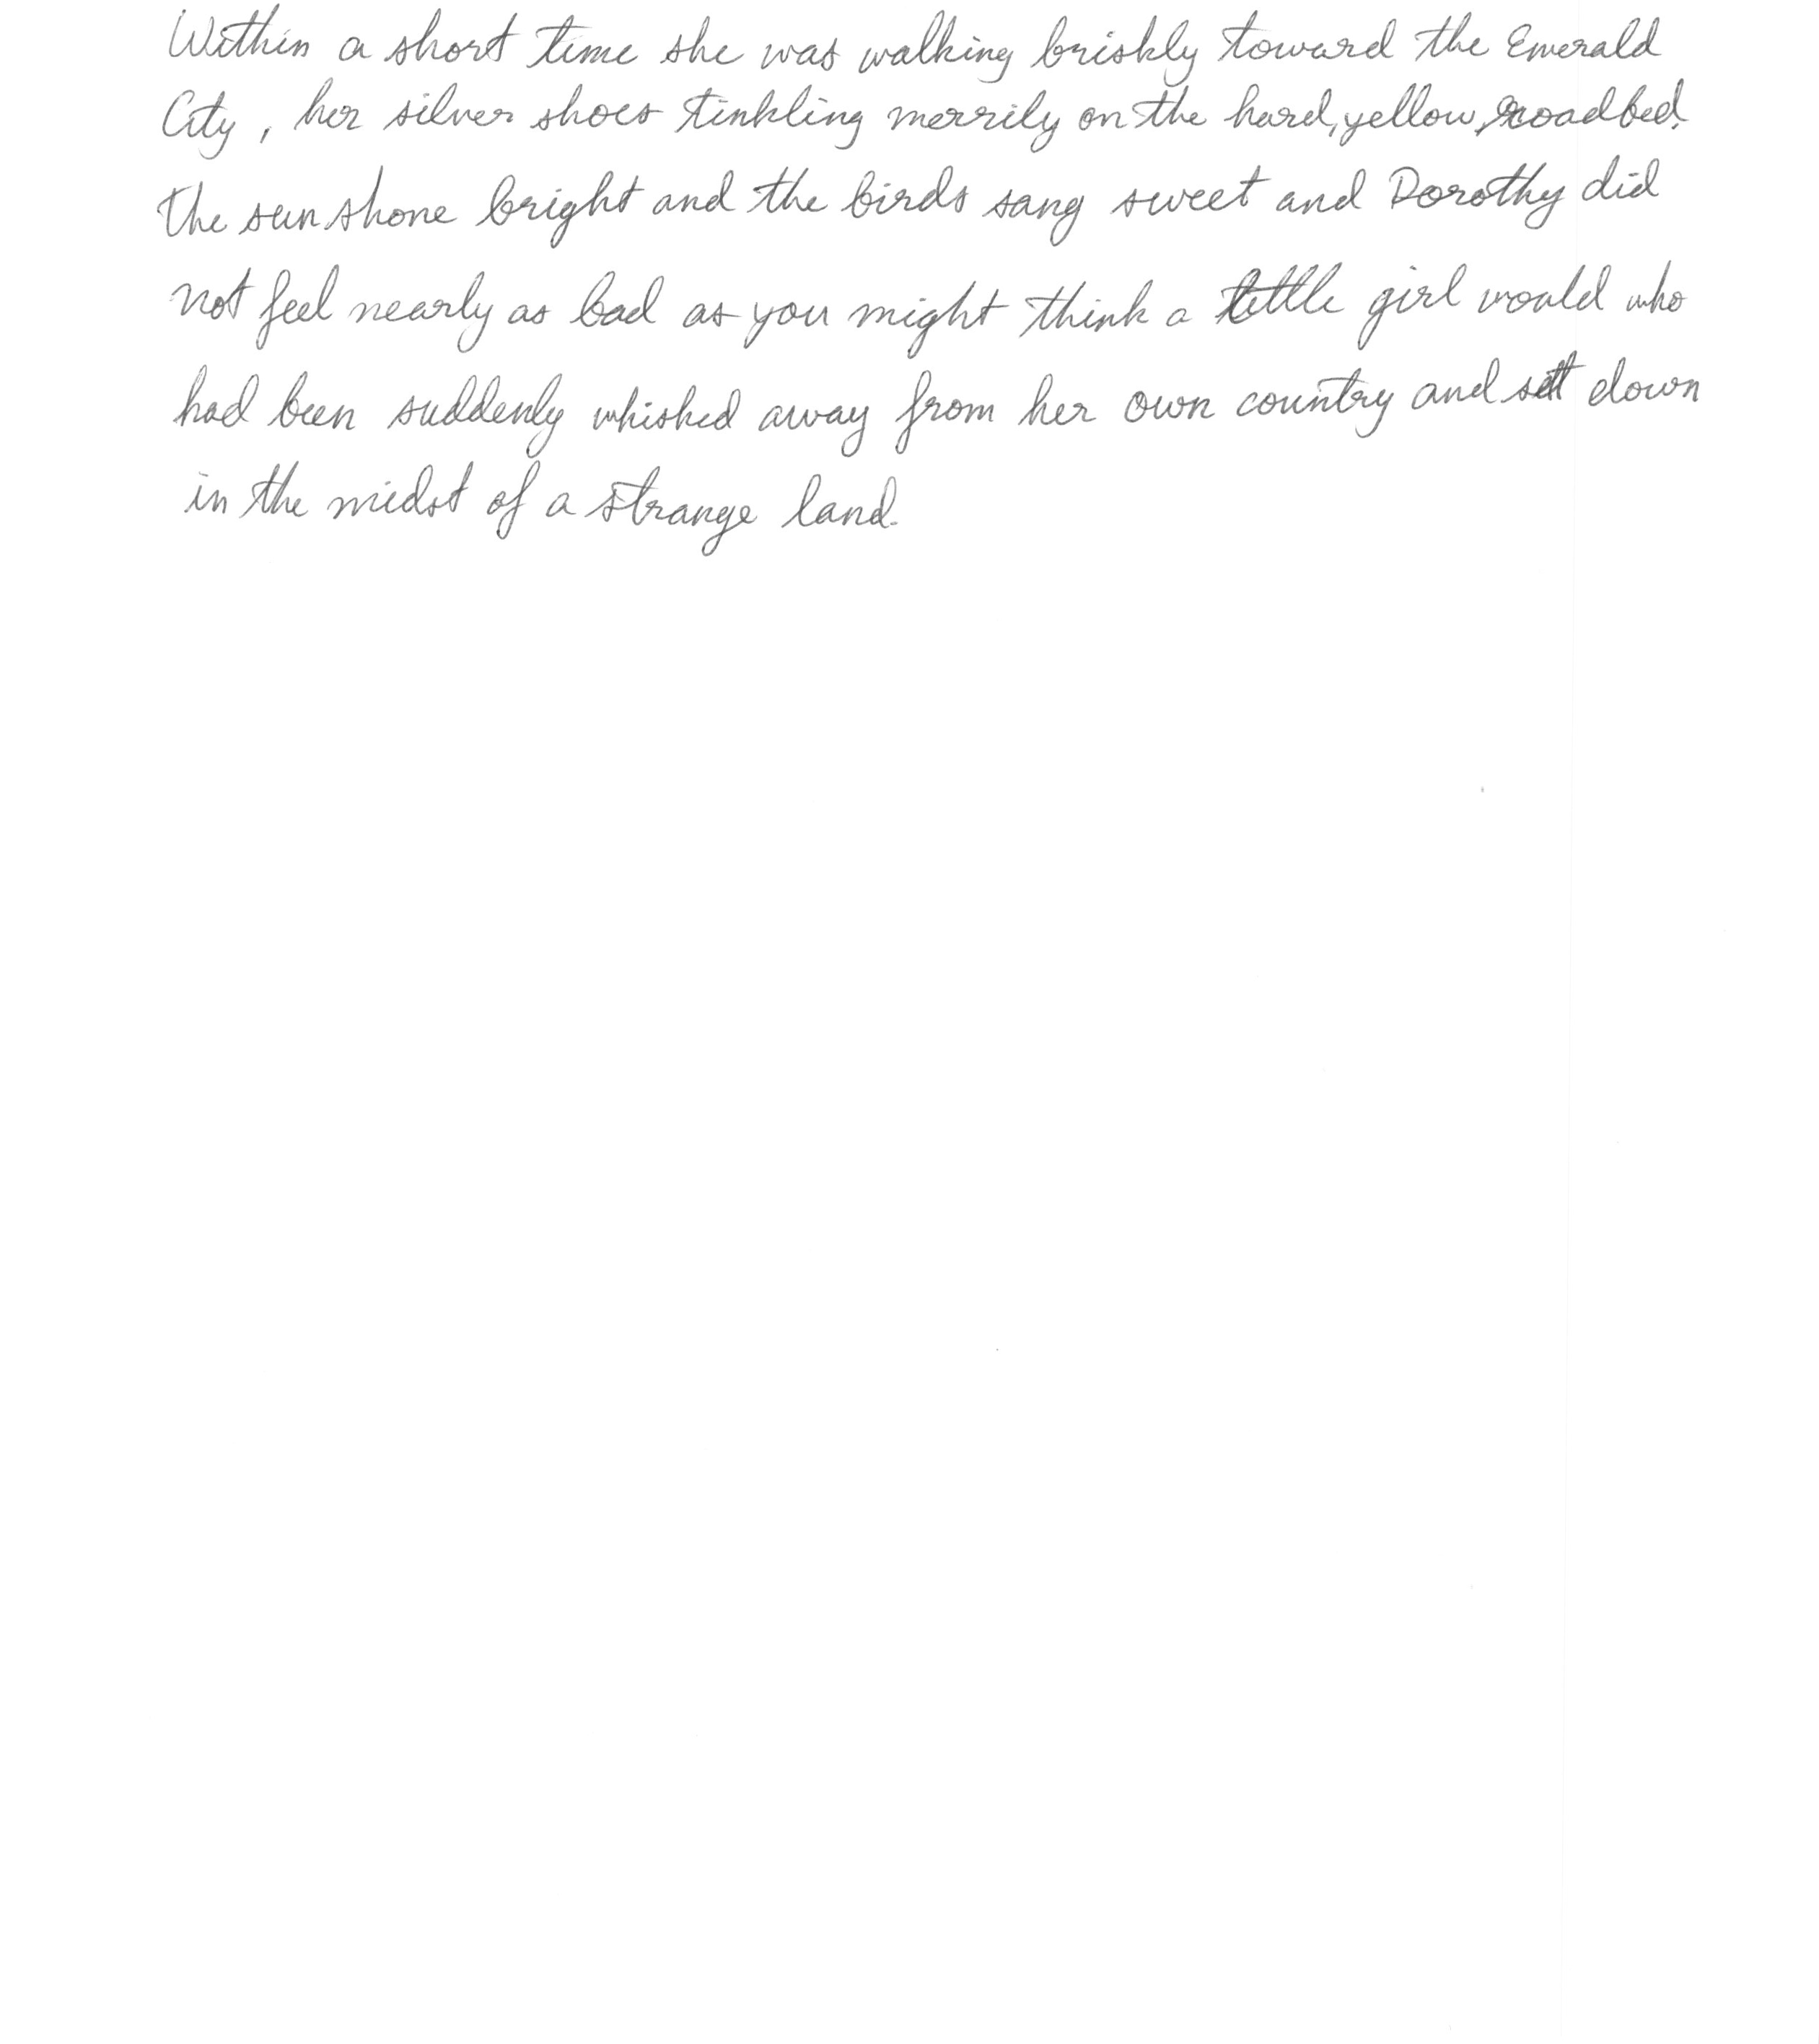 Within a short time she was walking briskly toward the Emerald
City, her silver shoes tinkling merrily on the hard, yellow, roadbed.
The sun shone bright and the birds sang sweet and Dorothy did
not feel nearly as bad as you might think a little girl would who
had been suddenly whisked away from her own country and set down
in the midst of a strange land.